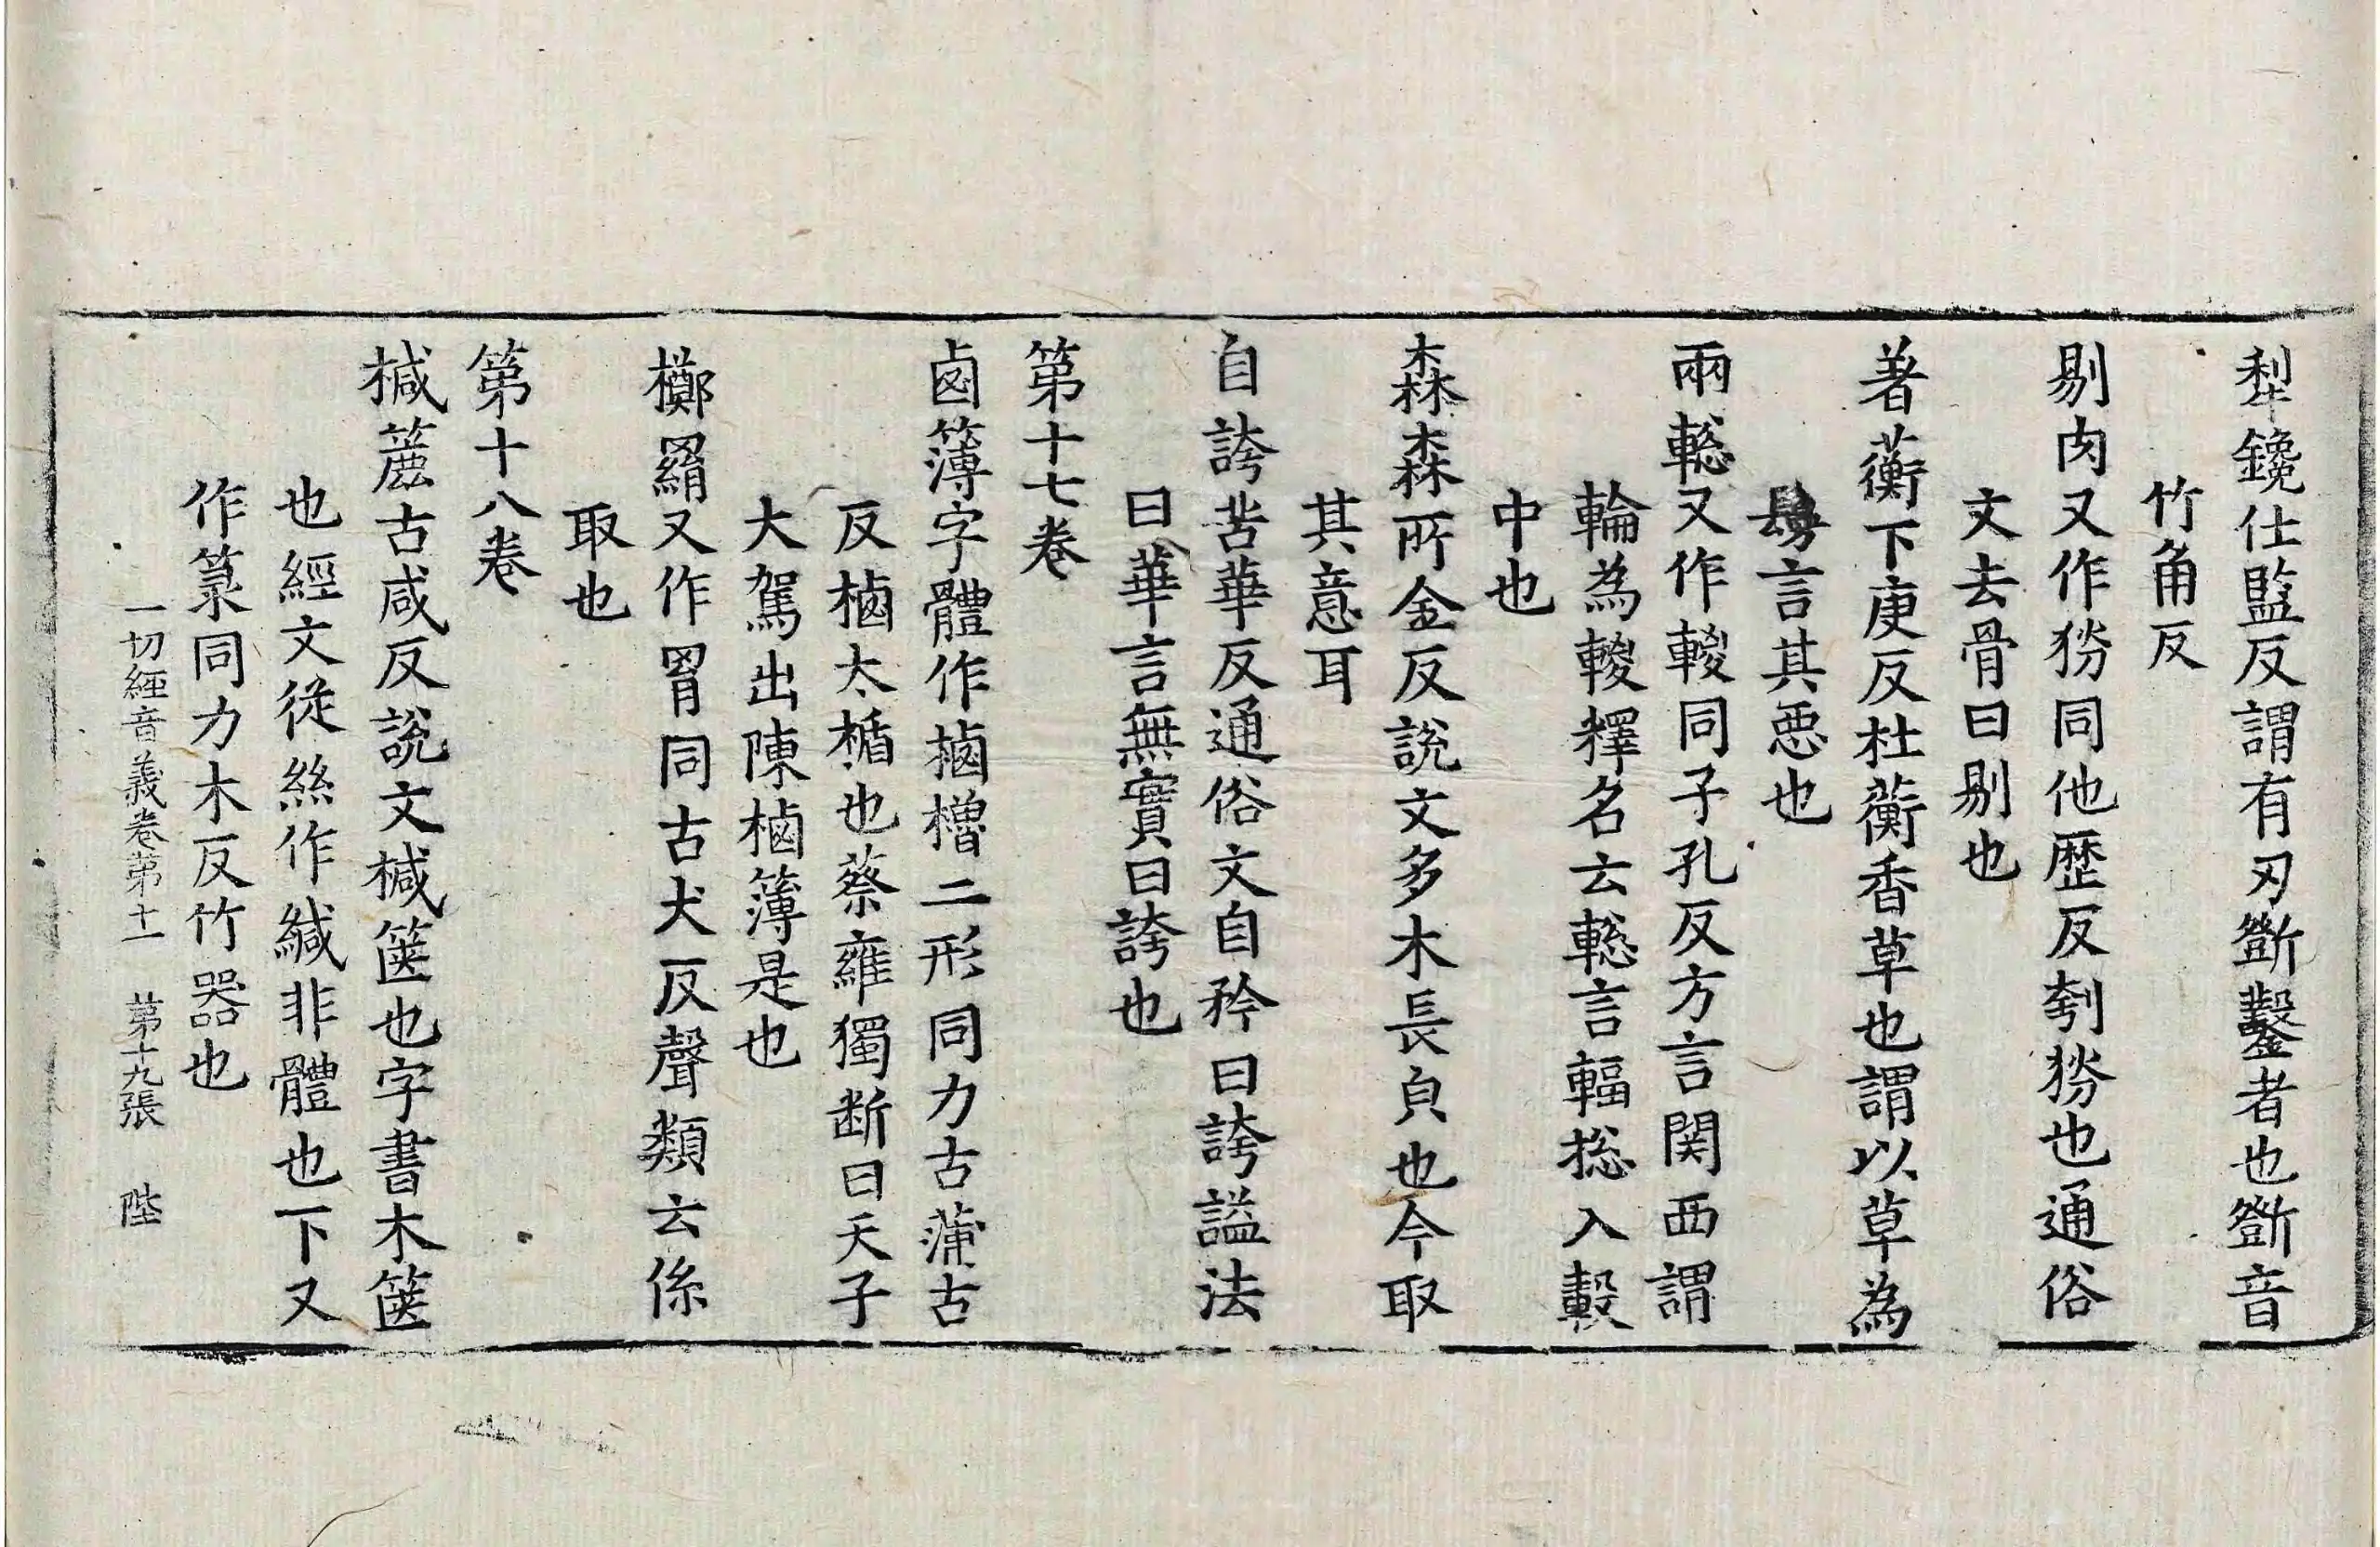 犁鑱仕監反謂有刃斵鑿者也斵音
竹角反
剔肉又作㔟同他歷反刳㔟也通俗
文去骨曰剔也
著蘅下庚反杜蘅香草也謂以草為
言其惡也
兩䡯又作輚同子孔反方言関西謂
輪為輚釋名云䡯言輻捴入轂
中也
森森所金反說文多木長皃也今取
其意耳
自誇苦華反通俗文自矜曰誇謚法
曰華言無實曰誇也
第十七卷
鹵簿字體作樐櫓二形同力古蒲古
反樐大楯也蔡雍獨断曰天子
大駕出陳樐簿是也
擲羂又作罥同古犬反聲類云係
取也
第十八卷
椷簏古咸反說文椷篋也字書木篋
也經文従絲作緘非體也下又
作箓同力木反竹器也
一切經音義卷第十一 第十九張 陛